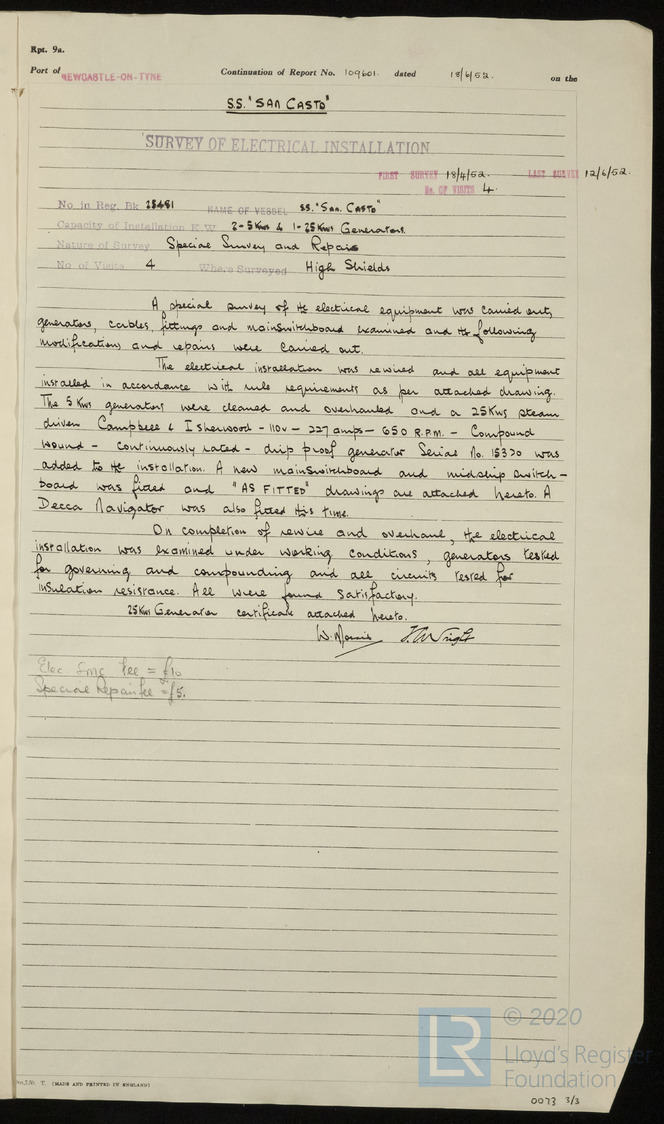 Rpt. 9a.
Port of NEWCASTLE-ON-TYNE Continuation of Report No. 109601. dated 18/6/52. on the
S.S. "SAN CASTO"
SURVEY OF ELECTRICAL INSTALLATION
FIRST SURVEY 18/4/52. LAST SURVEY 12/6/52.
No. OF VISITS 4.
No. in Reg. Bk 25451 NAME OF VESSEL SS. "San Casto"
Capacity of Installation K.W. 2-5Kws & 1-25Kws Generators.
Nature of Survey Special Survey and Repairs
No of Visits 4 Where Surveyed High Shields
A special survey of the electrical equipment was carried out,
generators, cables, fittings and mainswitchboard examined and the following
modifications and repairs were carried out.
The electrical installation was rewired and all equipment
installed in accordance with rule requirements as per attached drawing.
The 5 Kws generators were cleaned and overhauled and a 25Kws steam
driven Campbell & Isherwood - 110v - 227 amps - 650 R.P.M. - Compound
wound - continuously rated - drip proof generator Serial No. 15370 was
added to the installation. A new mainswitchboard and midship switch-
board was fitted and "AS FITTED" drawings are attached hereto. A
Decca Navigator was also fitted this time.
On completion of rewire and overhaul, the electrical
installation was examined under working conditions, generators tested
for governing and compounding and all circuits tested for
insulation resistance. All were found satisfactory.
25Kws Generator certificate attached hereto.
W. Morris J. Wright
Elec Smc fee = £10
Special Repair fee = £5.
T. (MADE AND PRINTED IN ENGLAND)
© 2020
LR Lloyd's Register
Foundation
0073 3/3